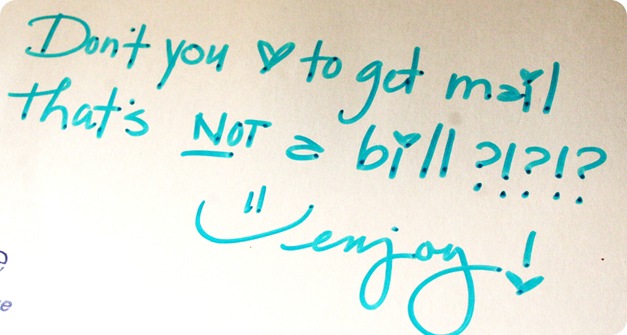 Don't you ♡ to get mail
that's NOT a bill ?!?!?
enjoy!